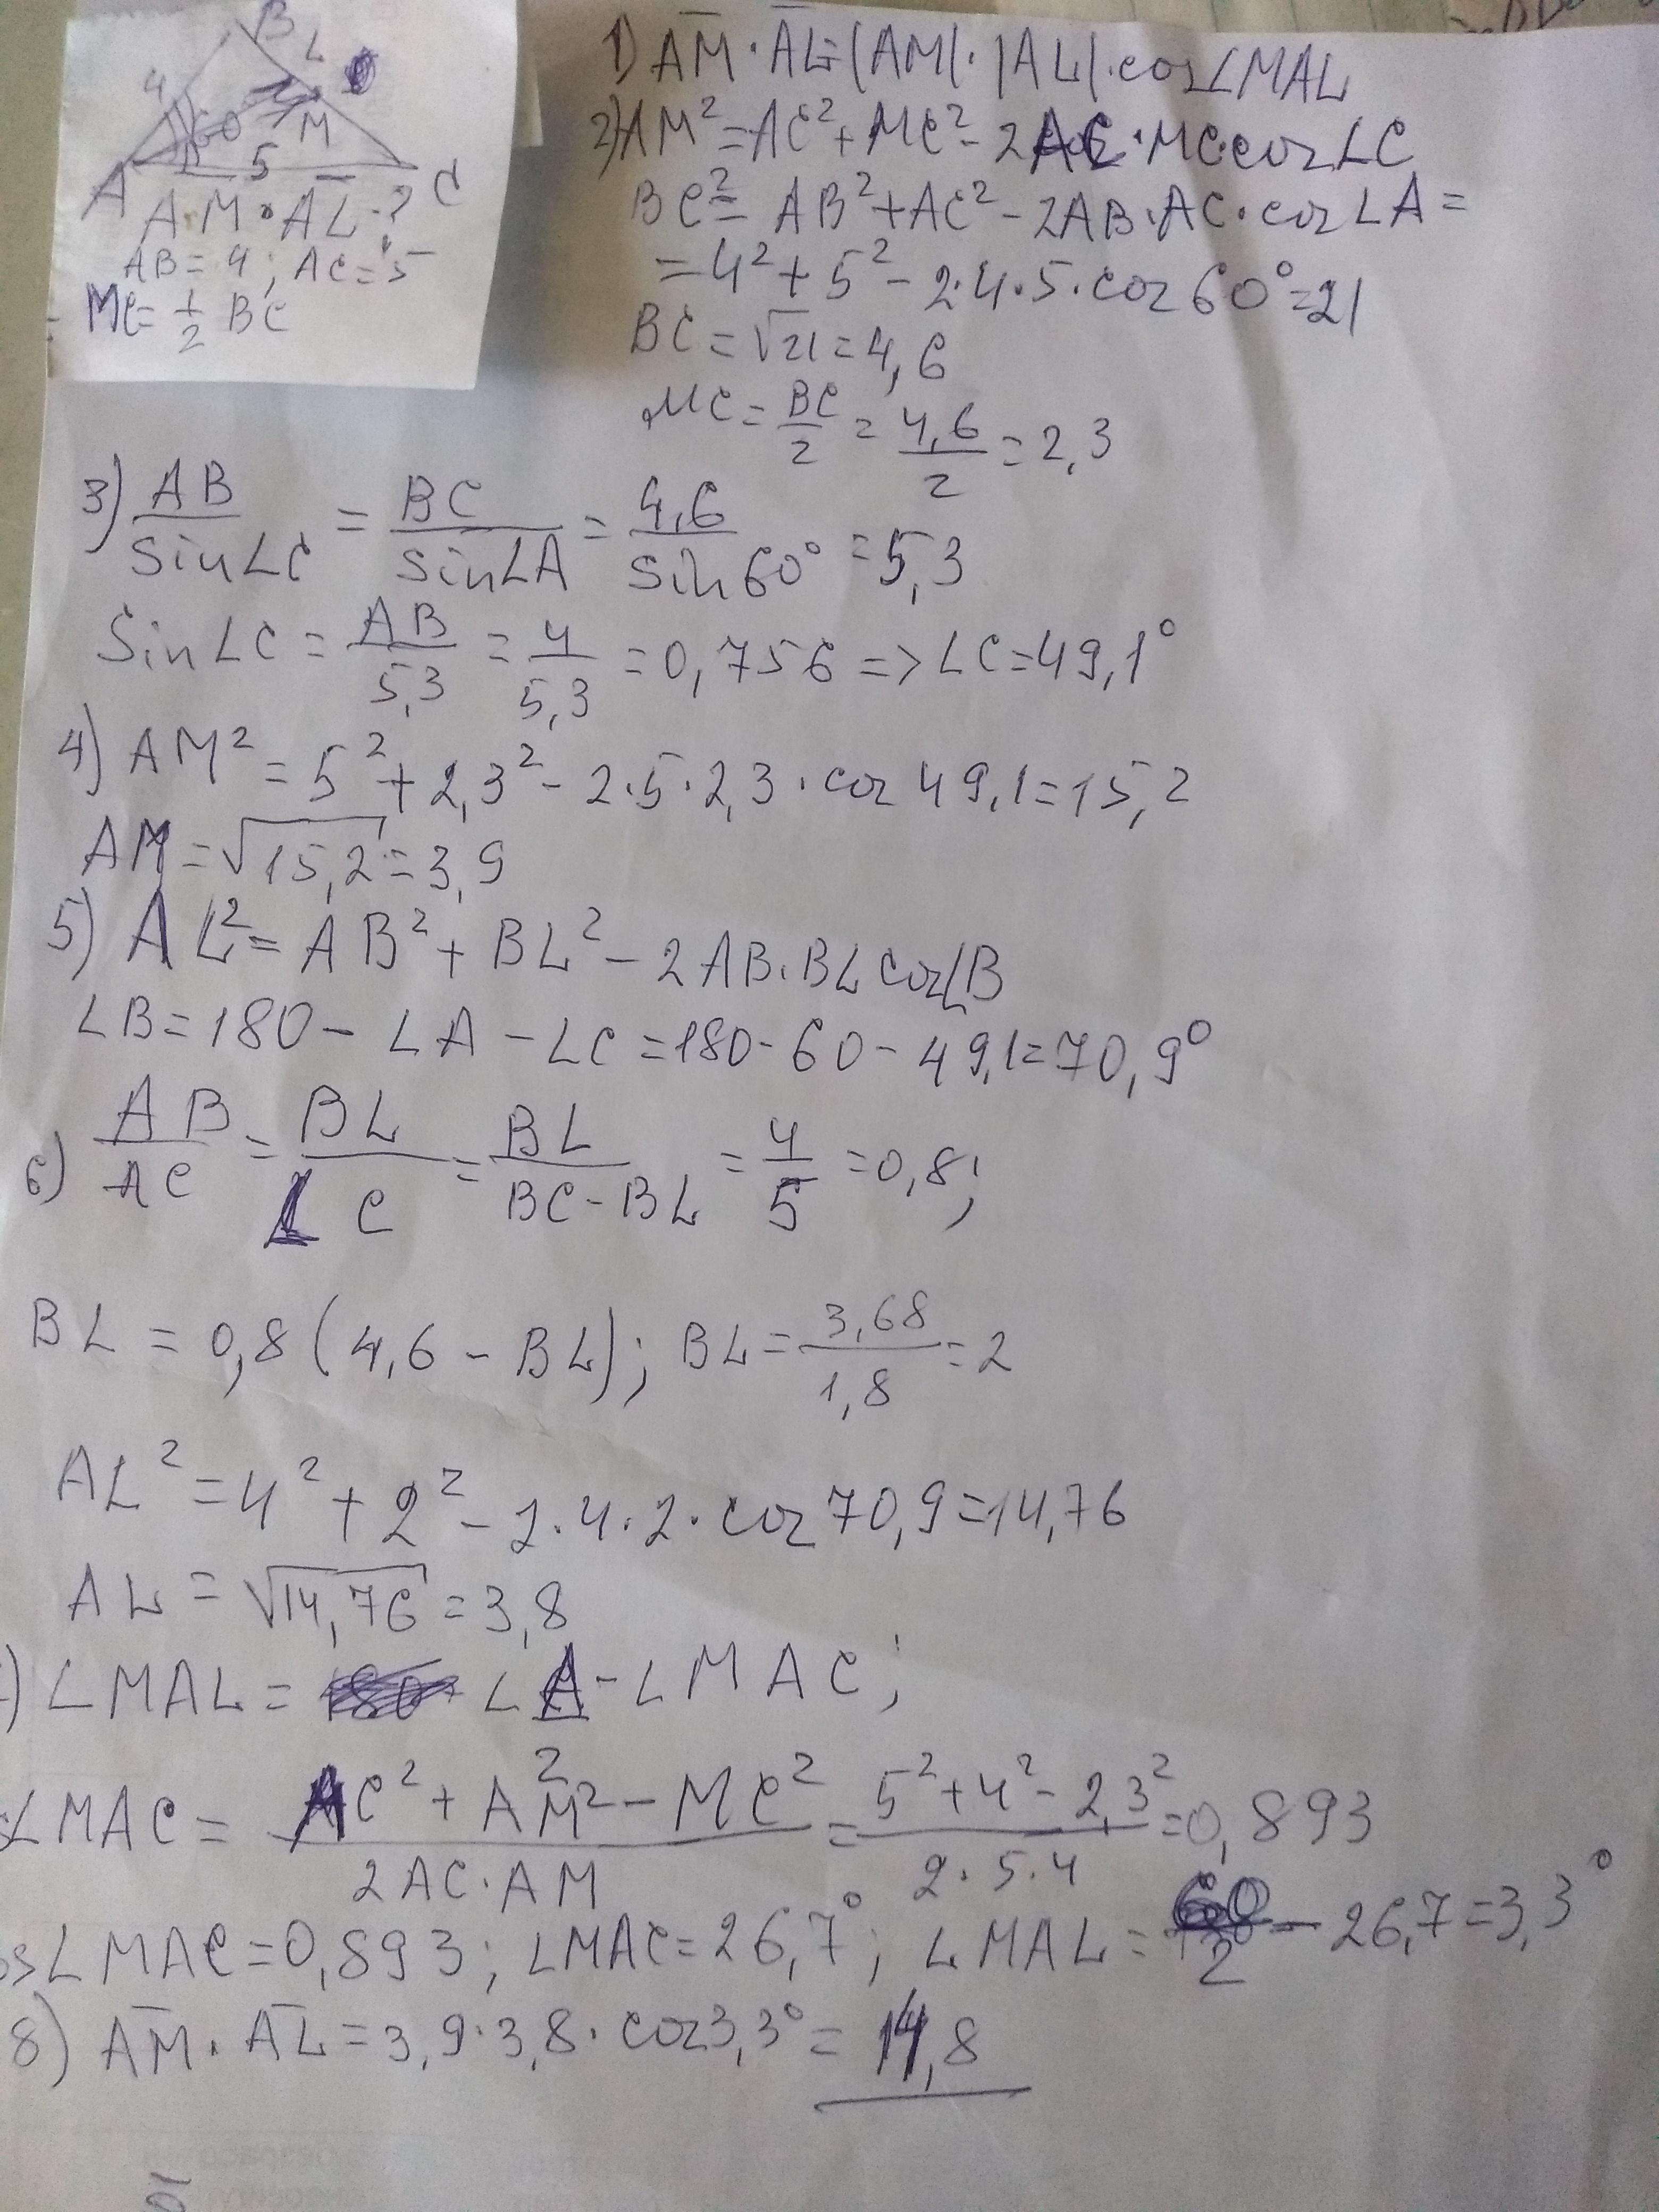 B
L
4
60
M
5
A
C
AM · AL - ?
AB = 4; AC = 5
MC = 1/2 BC
1) AM · AL = |AM| · |AL| · cos∠MAL
2) AM² = AC² + MC² - 2AC · MC · cos∠C
BC² = AB² + AC² - 2AB · AC · cos∠A =
= 4² + 5² - 2·4·5·cos60° = 21
BC = √21 = 4,6
MC = BC/2 = 4,6/2 = 2,3
3) AB/sin∠C = BC/sin∠A = 4,6/sin60° = 5,3
sin∠C = AB/5,3 = 4/5,3 = 0,756 => ∠C = 49,1°
4) AM² = 5² + 2,3² - 2·5·2,3·cos49,1 = 15,2
AM = √15,2 = 3,9
5) AL² = AB² + BL² - 2AB·BL cos∠B
∠B = 180 - ∠A - ∠C = 180 - 60 - 49,1 = 70,9°
6) AB/AC = BL/LC = BL/BC-BL = 4/5 = 0,8;
BL = 0,8(4,6 - BL); BL = 3,68/1,8 = 2
AL² = 4² + 2² - 2·4·2·cos70,9 = 14,76
AL = √14,76 = 3,8
) ∠MAL = ∠A - ∠MAC;
∠MAC = AC² + AM² - MC²/2AC·AM = 5² + 4² - 2,3²/2·5·4 = 0,893
os∠MAC = 0,893; ∠MAC = 26,7°; ∠MAL = 60/2 - 26,7 = 3,3°
8) AM · AL = 3,9·3,8·cos3,3° = 14,8